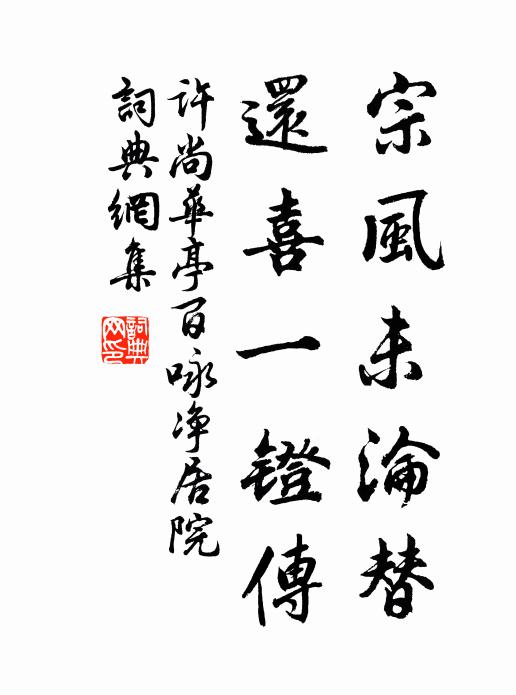 宗風未淪替
還喜一鐙傳
許尚華亭百咏净居院
詞典網集
詞典
网印